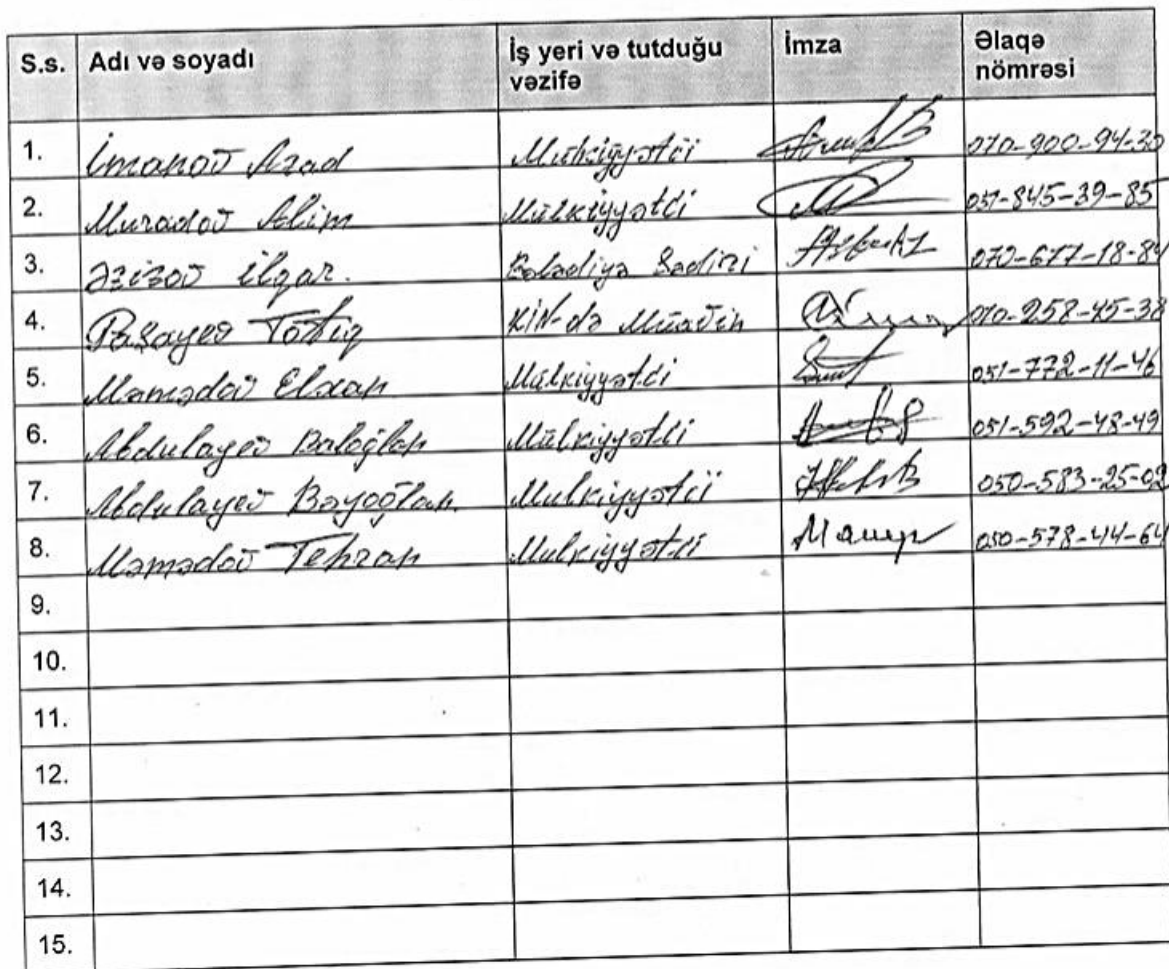 S.s. Adı və soyadı İş yeri və tutduğu vəzifə İmza Əlaqə nömrəsi
1. İmanov Azad Mulkiyyətçi 070-900-94-30
2. Muradov Alim Mülkiyyətçi 051-845-39-85
3. Əzizov ilqar. Bələdiyə Sədiri 070-677-18-84
4. Paşayev Tofiq KİN-də Müavin 070-258-45-38
5. Məmədov Elxan Mülkiyyətçi 051-772-11-46
6. Abdulayev Baloğlan Mülkiyyətçi 051-592-48-49
7. Abdulayev Bəyoğlan. Mulkiyyətçi 050-583-25-02
8. Məmədov Tehran Mulkiyyətçi 050-578-44-64
9.
10.
11.
12.
13.
14.
15.